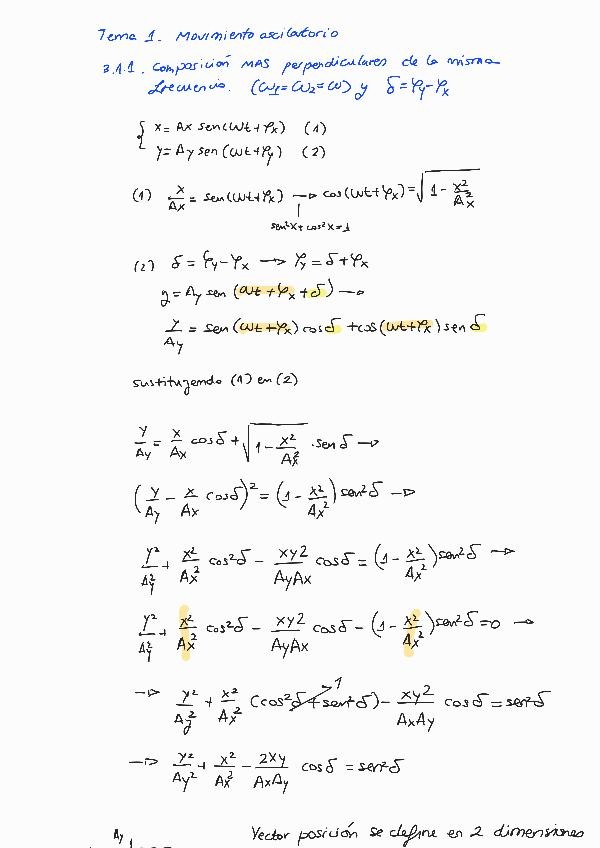 Tema 1. Movimiento oscilatorio
3.1.1. Composición MAS perpendiculares de la misma
frecuencia. (ω1=ω2=ω) y δ=φy-φx
{ x = Ax sen(ωt+φx) (1)
y = Ay sen(ωt+φy) (2)
(1) x/Ax = sen(ωt+φx) → cos(ωt+φx) = √(1 - x²/Ax²)
sen²x + cos²x = 1
(2) δ = φy-φx → φy = δ+φx
y = Ay sen(ωt+φx+δ) →
y/Ay = sen(ωt+φx) cosδ + cos(ωt+φx) sen δ
sustituyendo (1) en (2)
y/Ay = x/Ax cosδ + √(1 - x²/Ax²) · sen δ →
(y/Ay - x/Ax cosδ)² = (1 - x²/Ax²) sen²δ →
y²/Ay² + x²/Ax² cos²δ - xy2/AyAx cosδ = (1 - x²/Ax²) sen²δ →
y²/Ay² + x²/Ax² cos²δ - xy2/AyAx cosδ - (1 - x²/Ax²) sen²δ = 0 →
→ y²/Ay² + x²/Ax² (cos²δ + sen²δ) 1 - xy2/AxAy cosδ = sen²δ
→ y²/Ay² + x²/Ax² - 2xy/AxAy cosδ = sen²δ
Ay Vector posición se define en 2 dimensiones